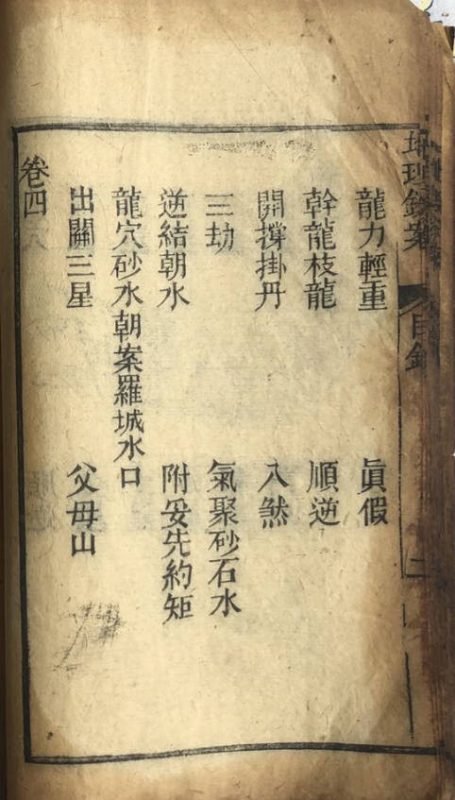 龍力輕重 眞假
幹龍枝龍 順逆
開撐掛丹 入煞
三劫 氣聚砂石水
逆結朝水 附妥先約矩
龍穴砂水朝案羅城水口
出關三星 父母山
卷四
目錄
二